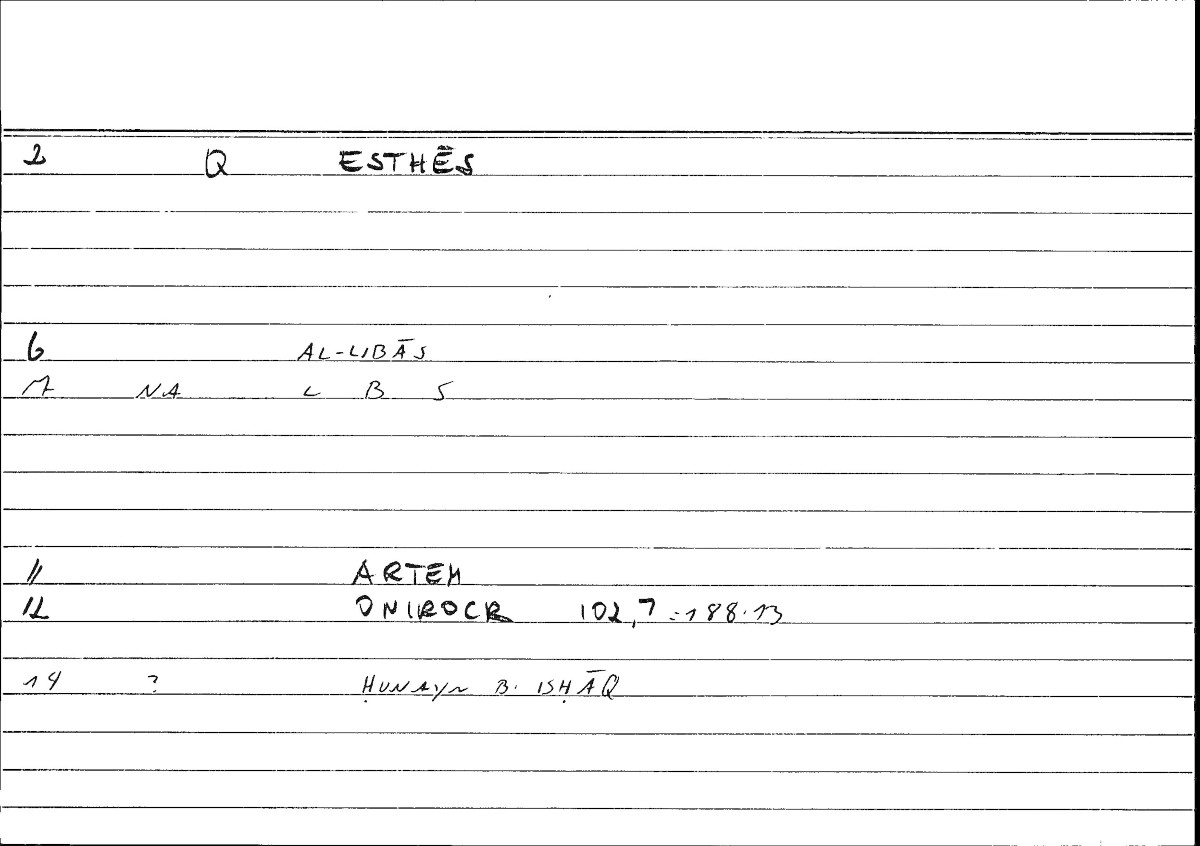 2 Q ESTHĒS
6 AL-LIBĀS
7 NA L B S
11 ARTEM
12 ONIROCR 102,7 = 188.13
14 ? ḤUNAYN B. ISḤĀQ